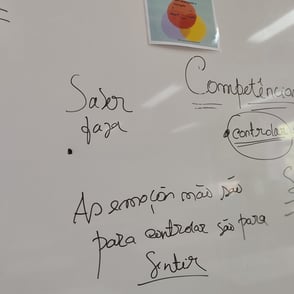 Competência
Saber
faza
controlar
As emoção não são
para controlar são para
Sentir